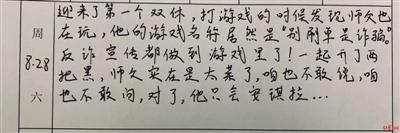 迎来了第一个双休，打游戏的时候发现师父也
周 在玩，他的游戏名称居然是"别刷单是诈骗。"
反诈宣传都做到游戏里了！一起开了两
8.28 把黑，师父实在是太菜了，咱也不敢说，咱
六 也不敢问，对了，他只会安琪拉...